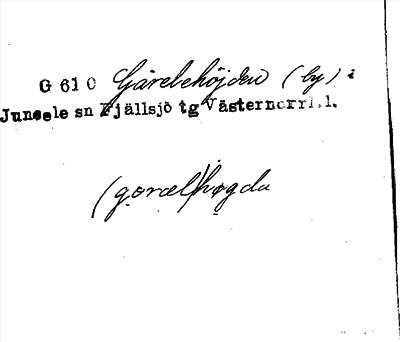 G 610 Gårelehöjden (by) i
Junsele sn Fjällsjö tg Västernorrl.l.
(goræl)høgda